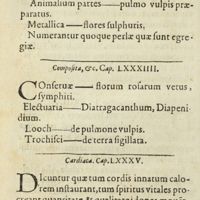 Animalium partes — pulmo vulpis præ-
paratus.
Metallica — flores sulphuris,
Numerantur quoque perlæ quæ sunt egre-
giæ.
Composita, &c. Cap. LXXXIIII.
Conseruæ — florum rosarum vetus,
symphiti.
Electuaria — Diatragacanthum, Diapeni-
dium.
Looch — de pulmone vulpis.
Trochisci — de terra sigillata.
Cardiaca. Cap. LXXXV.
Dicuntur quæ tum cordis innatum calo-
rem instaurant, tum spiritus vitales pro-